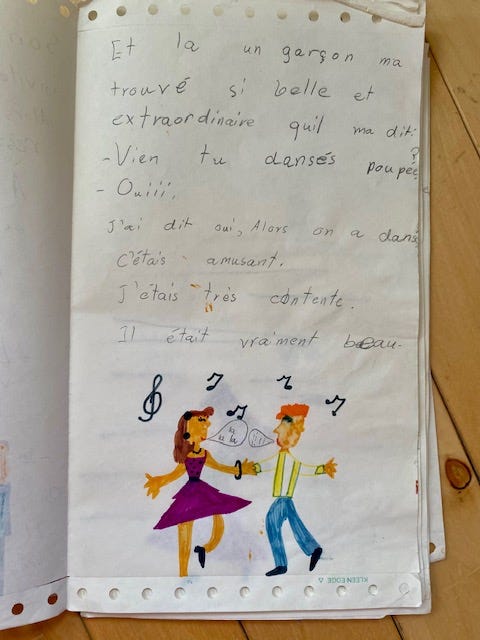 Et la un garçon ma
trouvé si belle et
extraordinaire quil ma dit:
-Vien tu dansés poupée?
- Ouiiii.
J'ai dit oui, Alors on a dansé
C'étais amusant.
J'étais très contente.
Il était vraiment beau.
KLEEN EDGE